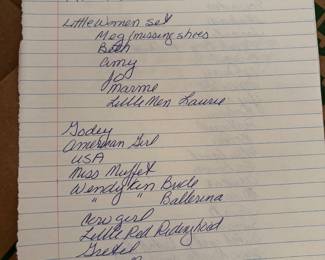 Little Women set
Meg (missing shoes
Beth
Amy
Jo
Marme
Little Men Laurie
Godey
American Girl
USA
Miss Muffet
Wendykin Bride
" " Ballerina
girl
Little Red Ridinghood
Gretel